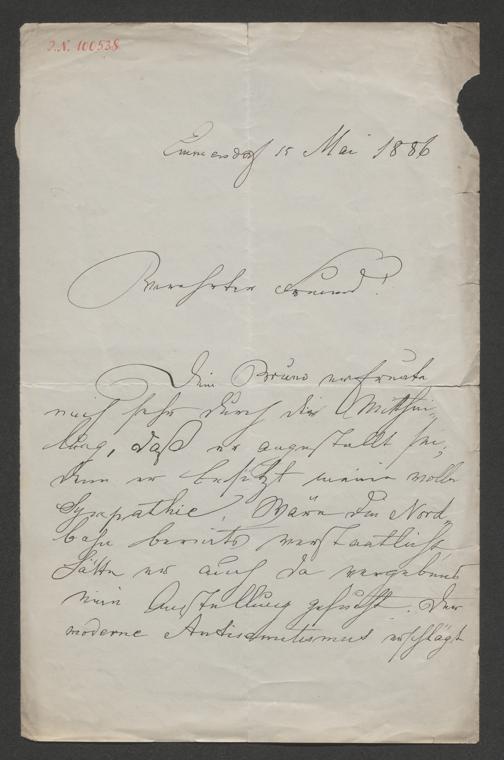 J.N. 100538
Emmersdorf 15 Mai 1886
Verehrter Freund!
Dein Bruno erfreute
mich sehr durch die Mitthei-
lung, daß er angestellt sei,
denn er besitzt meine volle
Sympathie. Wäre die Nord-
bahn bereits verstaatlicht,
hätte er auch da vergebens
eine Anstellung gesucht. Der
moderne Antisemitismus erschlägt